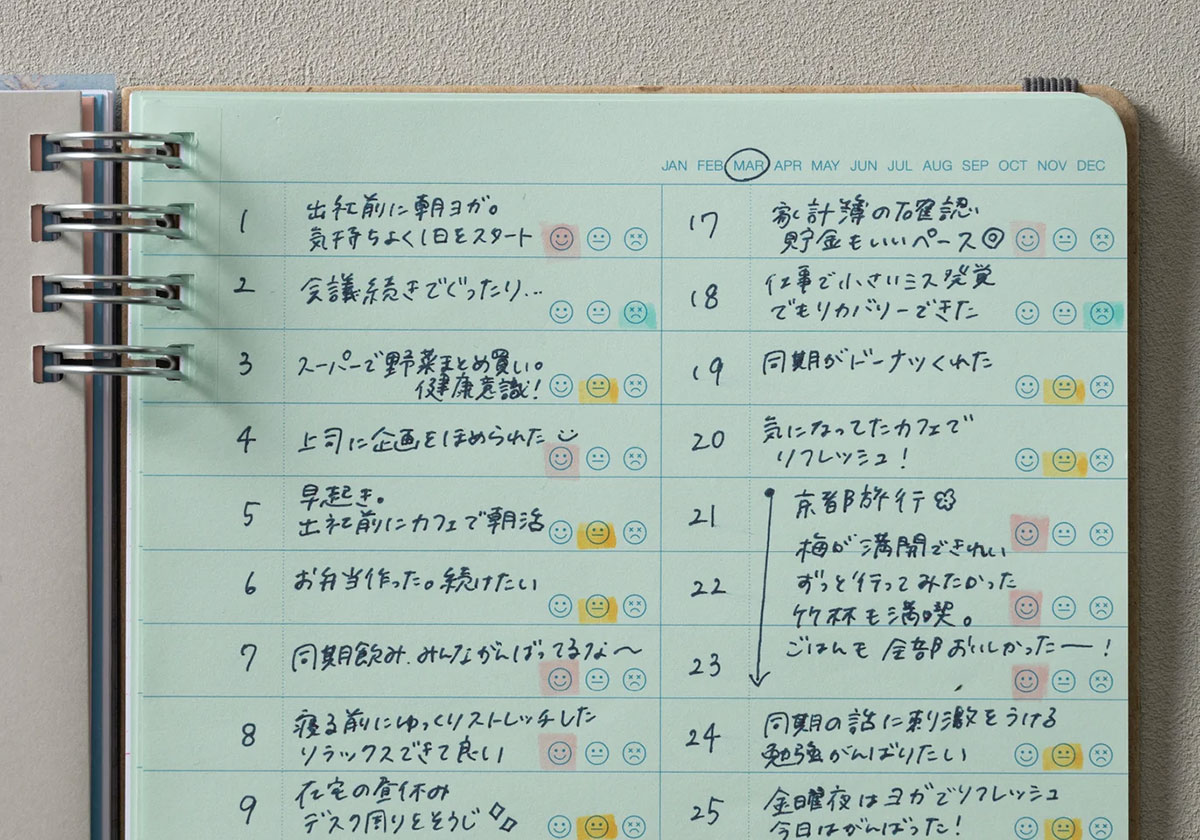 JAN FEB MAR APR MAY JUN JUL AUG SEP OCT NOV DEC
1
出社前に朝ヨガ。
気持ちよく1日をスタート
2
会議続きでぐったり...
3
スーパーで野菜まとめ買い。
健康意識!
4
上司に企画をほめられた
5
早起き。
出社前にカフェで朝活
6
お弁当作った。続けたい
7
同期飲み、みんながんばってるな〜
8
寝る前にゆっくりストレッチした
リラックスできて良い
9
在宅の昼休み
デスク周りをそうじ
17
家計簿の確認
貯金もいいペース◎
18
仕事で小さいミス発覚
でもリカバリーできた
19
同期がドーナツくれた
20
気になってたカフェで
リフレッシュ!
21
京都旅行
梅が満開できれい
22
ずっと行ってみたかった
竹林も満喫。
23
ごはんも全部おいしかったー!
24
同期の話に刺激をうける
勉強がんばりたい
25
金曜夜はヨガでリフレッシュ
今日はがんばった!